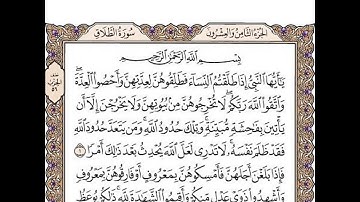 الجزء الثامن والعشرون
سورة الطلاق
بِسْمِ اللَّهِ الرَّحْمَٰنِ الرَّحِيمِ
يَٰٓأَيُّهَا ٱلنَّبِيُّ إِذَا طَلَّقْتُمُ ٱلنِّسَآءَ فَطَلِّقُوهُنَّ لِعِدَّتِهِنَّ وَأَحْصُوا۟ ٱلْعِدَّةَ
وَٱتَّقُوا۟ ٱللَّهَ رَبَّكُمْ لَا تُخْرِجُوهُنَّ مِنۢ بُيُوتِهِنَّ وَلَا يَخْرُجْنَ إِلَّآ أَن
يَأْتِينَ بِفَٰحِشَةٍ مُّبَيِّنَةٍ وَتِلْكَ حُدُودُ ٱللَّهِ وَمَن يَتَعَدَّ حُدُودَ ٱللَّهِ
فَقَدْ ظَلَمَ نَفْسَهُۥ لَا تَدْرِى لَعَلَّ ٱللَّهَ يُحْدِثُ بَعْدَ ذَٰلِكَ أَمْرًا ١
فَإِذَا بَلَغْنَ أَجَلَهُنَّ فَأَمْسِكُوهُنَّ بِمَعْرُوفٍ أَوْ فَارِقُوهُنَّ بِمَعْرُوفٍ
وَأَشْهِدُوا۟ ذَوَىْ عَدْلٍ مِّنكُمْ وَأَقِيمُوا۟ ٱلشَّهَٰدَةَ لِلَّهِ ذَٰلِكُمْ يُوعَظُ